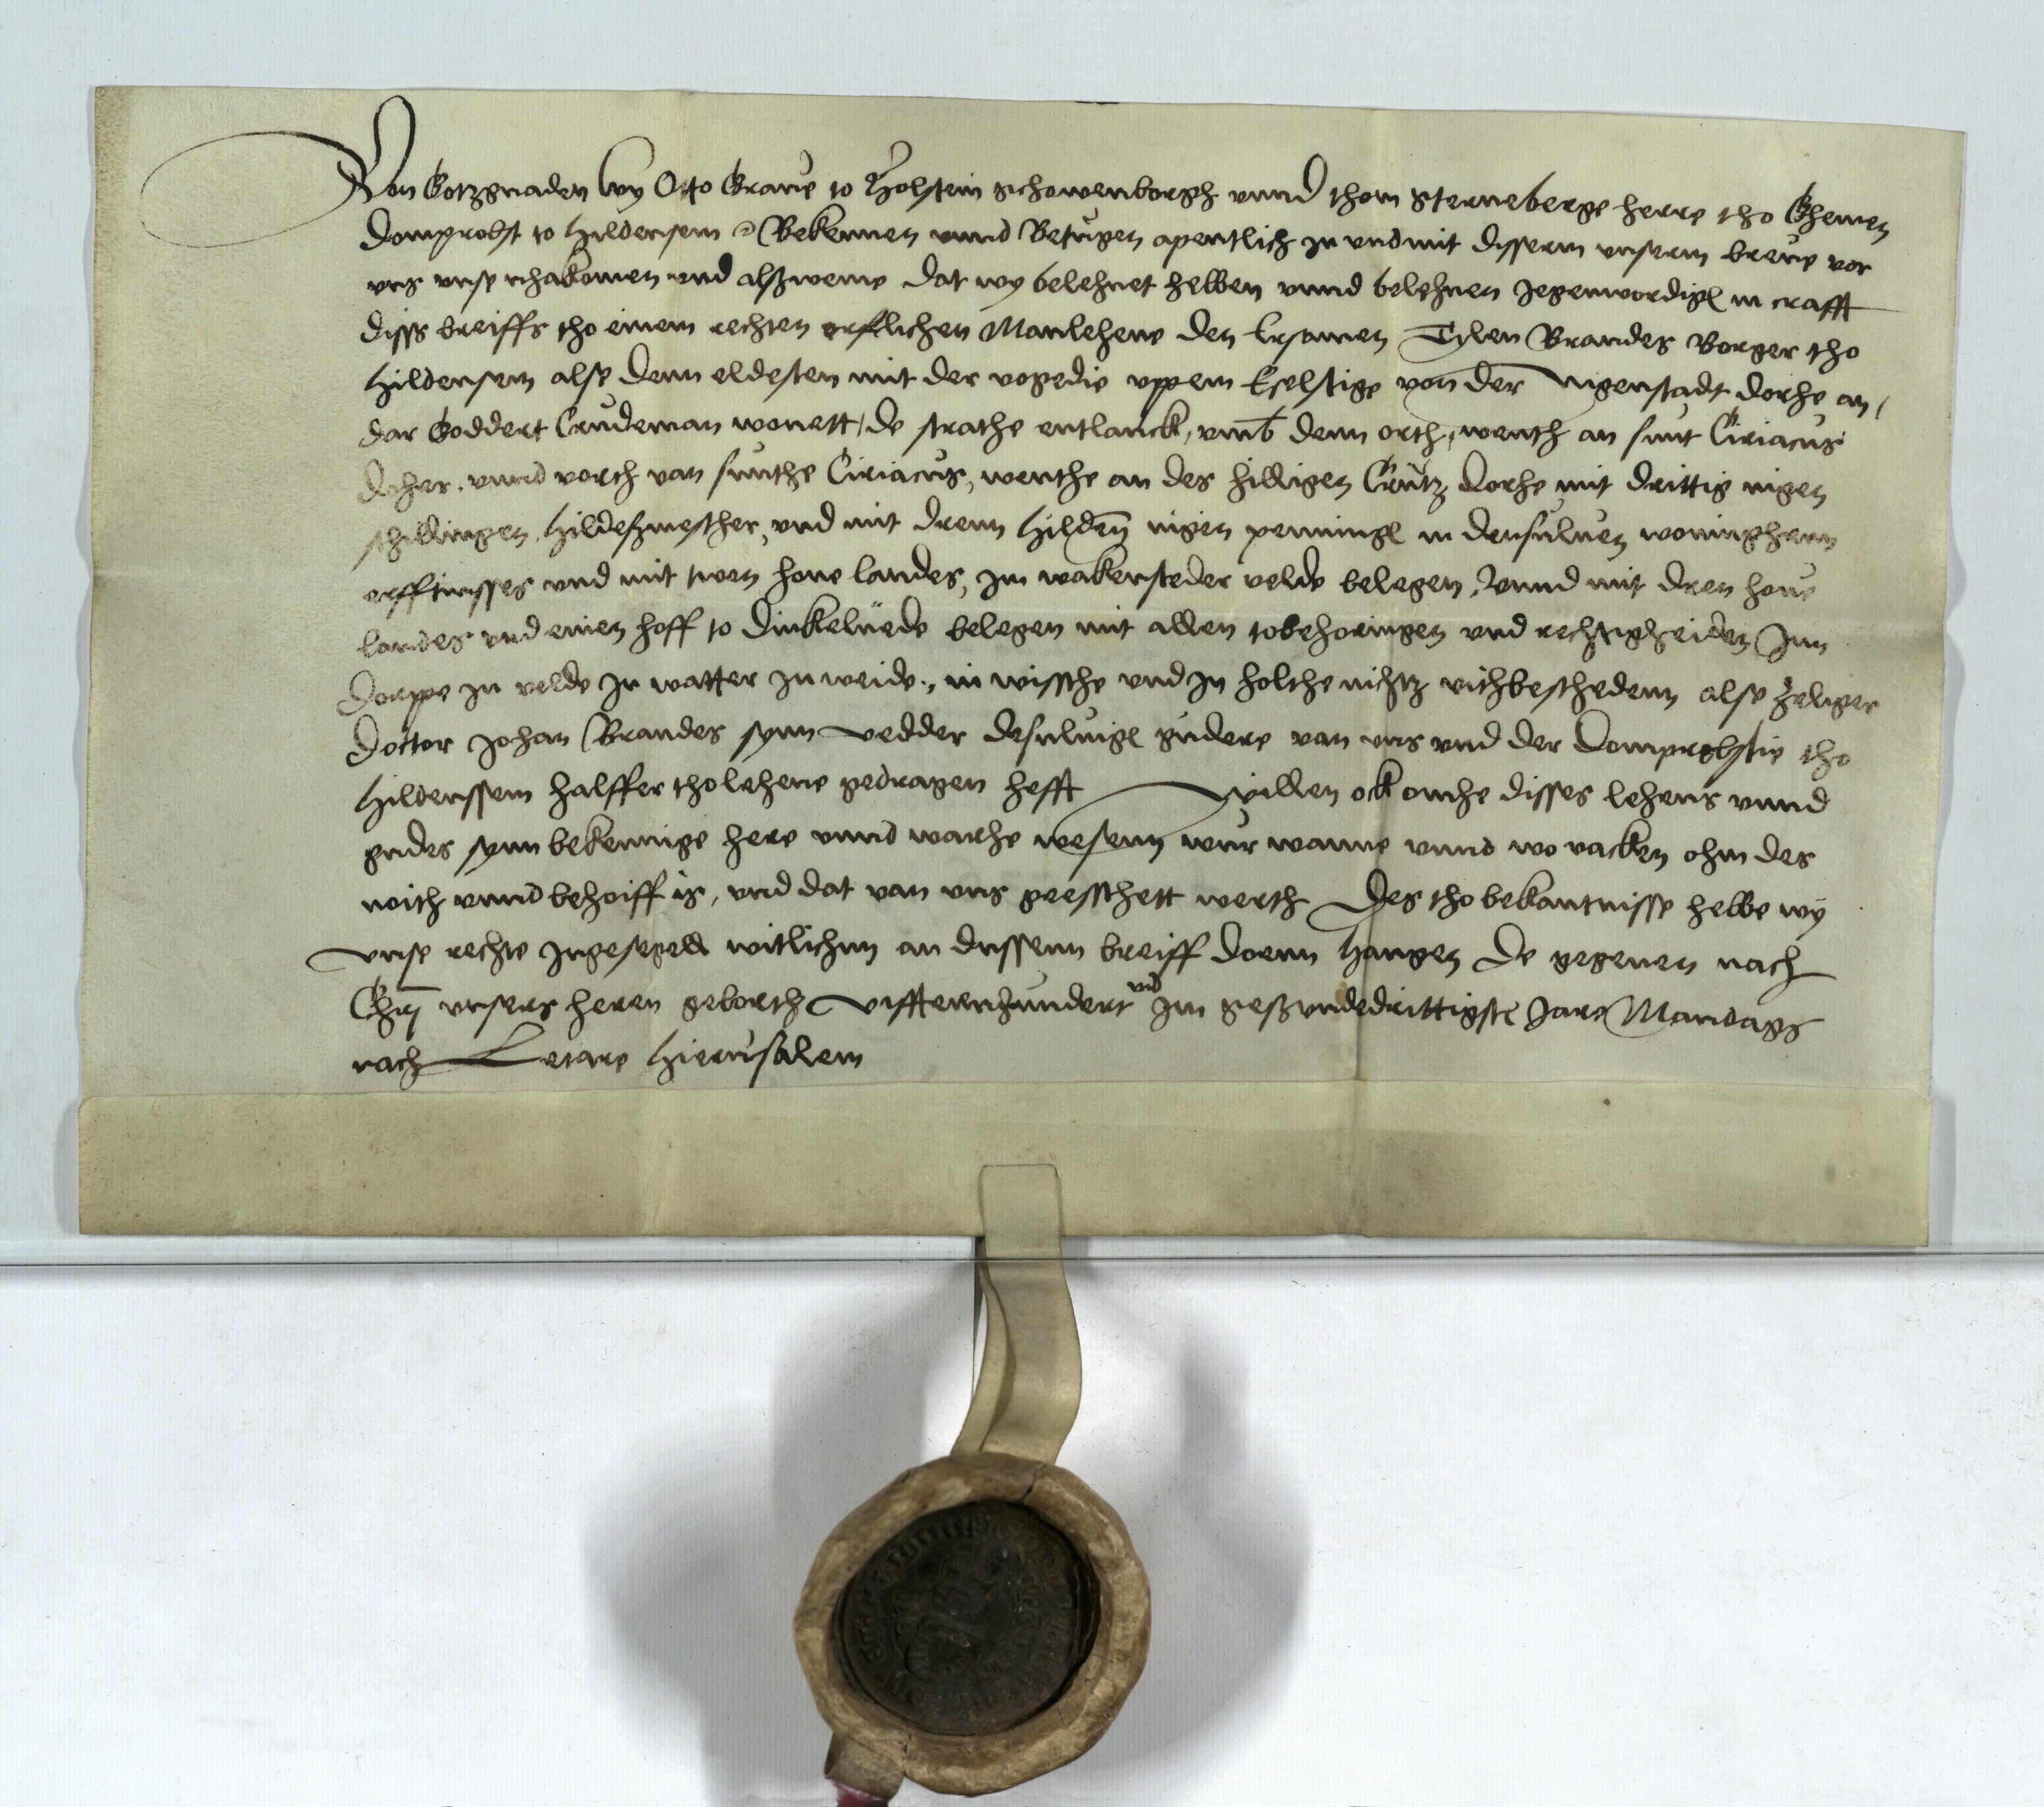 Von Gotzgnaden wy Otto Graue to Holstein Schowenborgh vnnd thom Sterneberge herre tho Ghemen
Domprobst to Hildensem Bekennen vnnd Betugen apentlich in vnd mit dissem vnserm breue vor
vns vnse nhakomen vnd alßweme dat wy belehnet hebben vnnd belehnen Jegenwordigl in crafft
disss breiffs tho einem rechten erflichen Manlehene den Ersamen Tylen Brandes Borger tho
Hildensem alse denn eldesten mit der vogedie vppem Eselstige von der nigenstadt dorhe an /
dar Goddert Crudeman wonett / de strathe entlanck, vmb denn orth, wenth an sunt Ciriacus
doher. vnnd vorth van sunthe Ciriacus, wenthe an des hilligen Crutz dorhe mit drittig nigen
schillingen Hildeßmescher, vnd mit drenn Hilden nigen penningl in densuluen woninghenn
erfftinsses vnd mit twen houe landes, im wakensteder velde belegen, vnnd mit dren houe
landes vnd einen hoff to Dinkeluede belegen mit allen tobehoringen vnd rechtigheiden Jnn
dorppe in velde in watter in weide, in wissche vnd in holthe nichtz vithbeschedenn alse zeliger
Doctor Johan Brandes synn vedder desuluigl gudere van vns vnd der Domprobstie tho
Hildenssem halffer tho lehene gedragen hefft Willen ock omhe disses lehens vnnd
gudes synn bekennige here vnnd warhe wesenn wur wanne vnnd wo vacken ohm des
noith vnnd behoiff is, vnd dat van vns geesschett werth Des tho bekantnisse hebbe wy
vnse rechte Ingesegell witlichnn an dussenn breiff doenn hangen De gegeuen nach
Chri vnsers heren geborth viffteinhundert vnd Jm seßvndedrittigste Jare Mandags
nach Letare Hierusalem